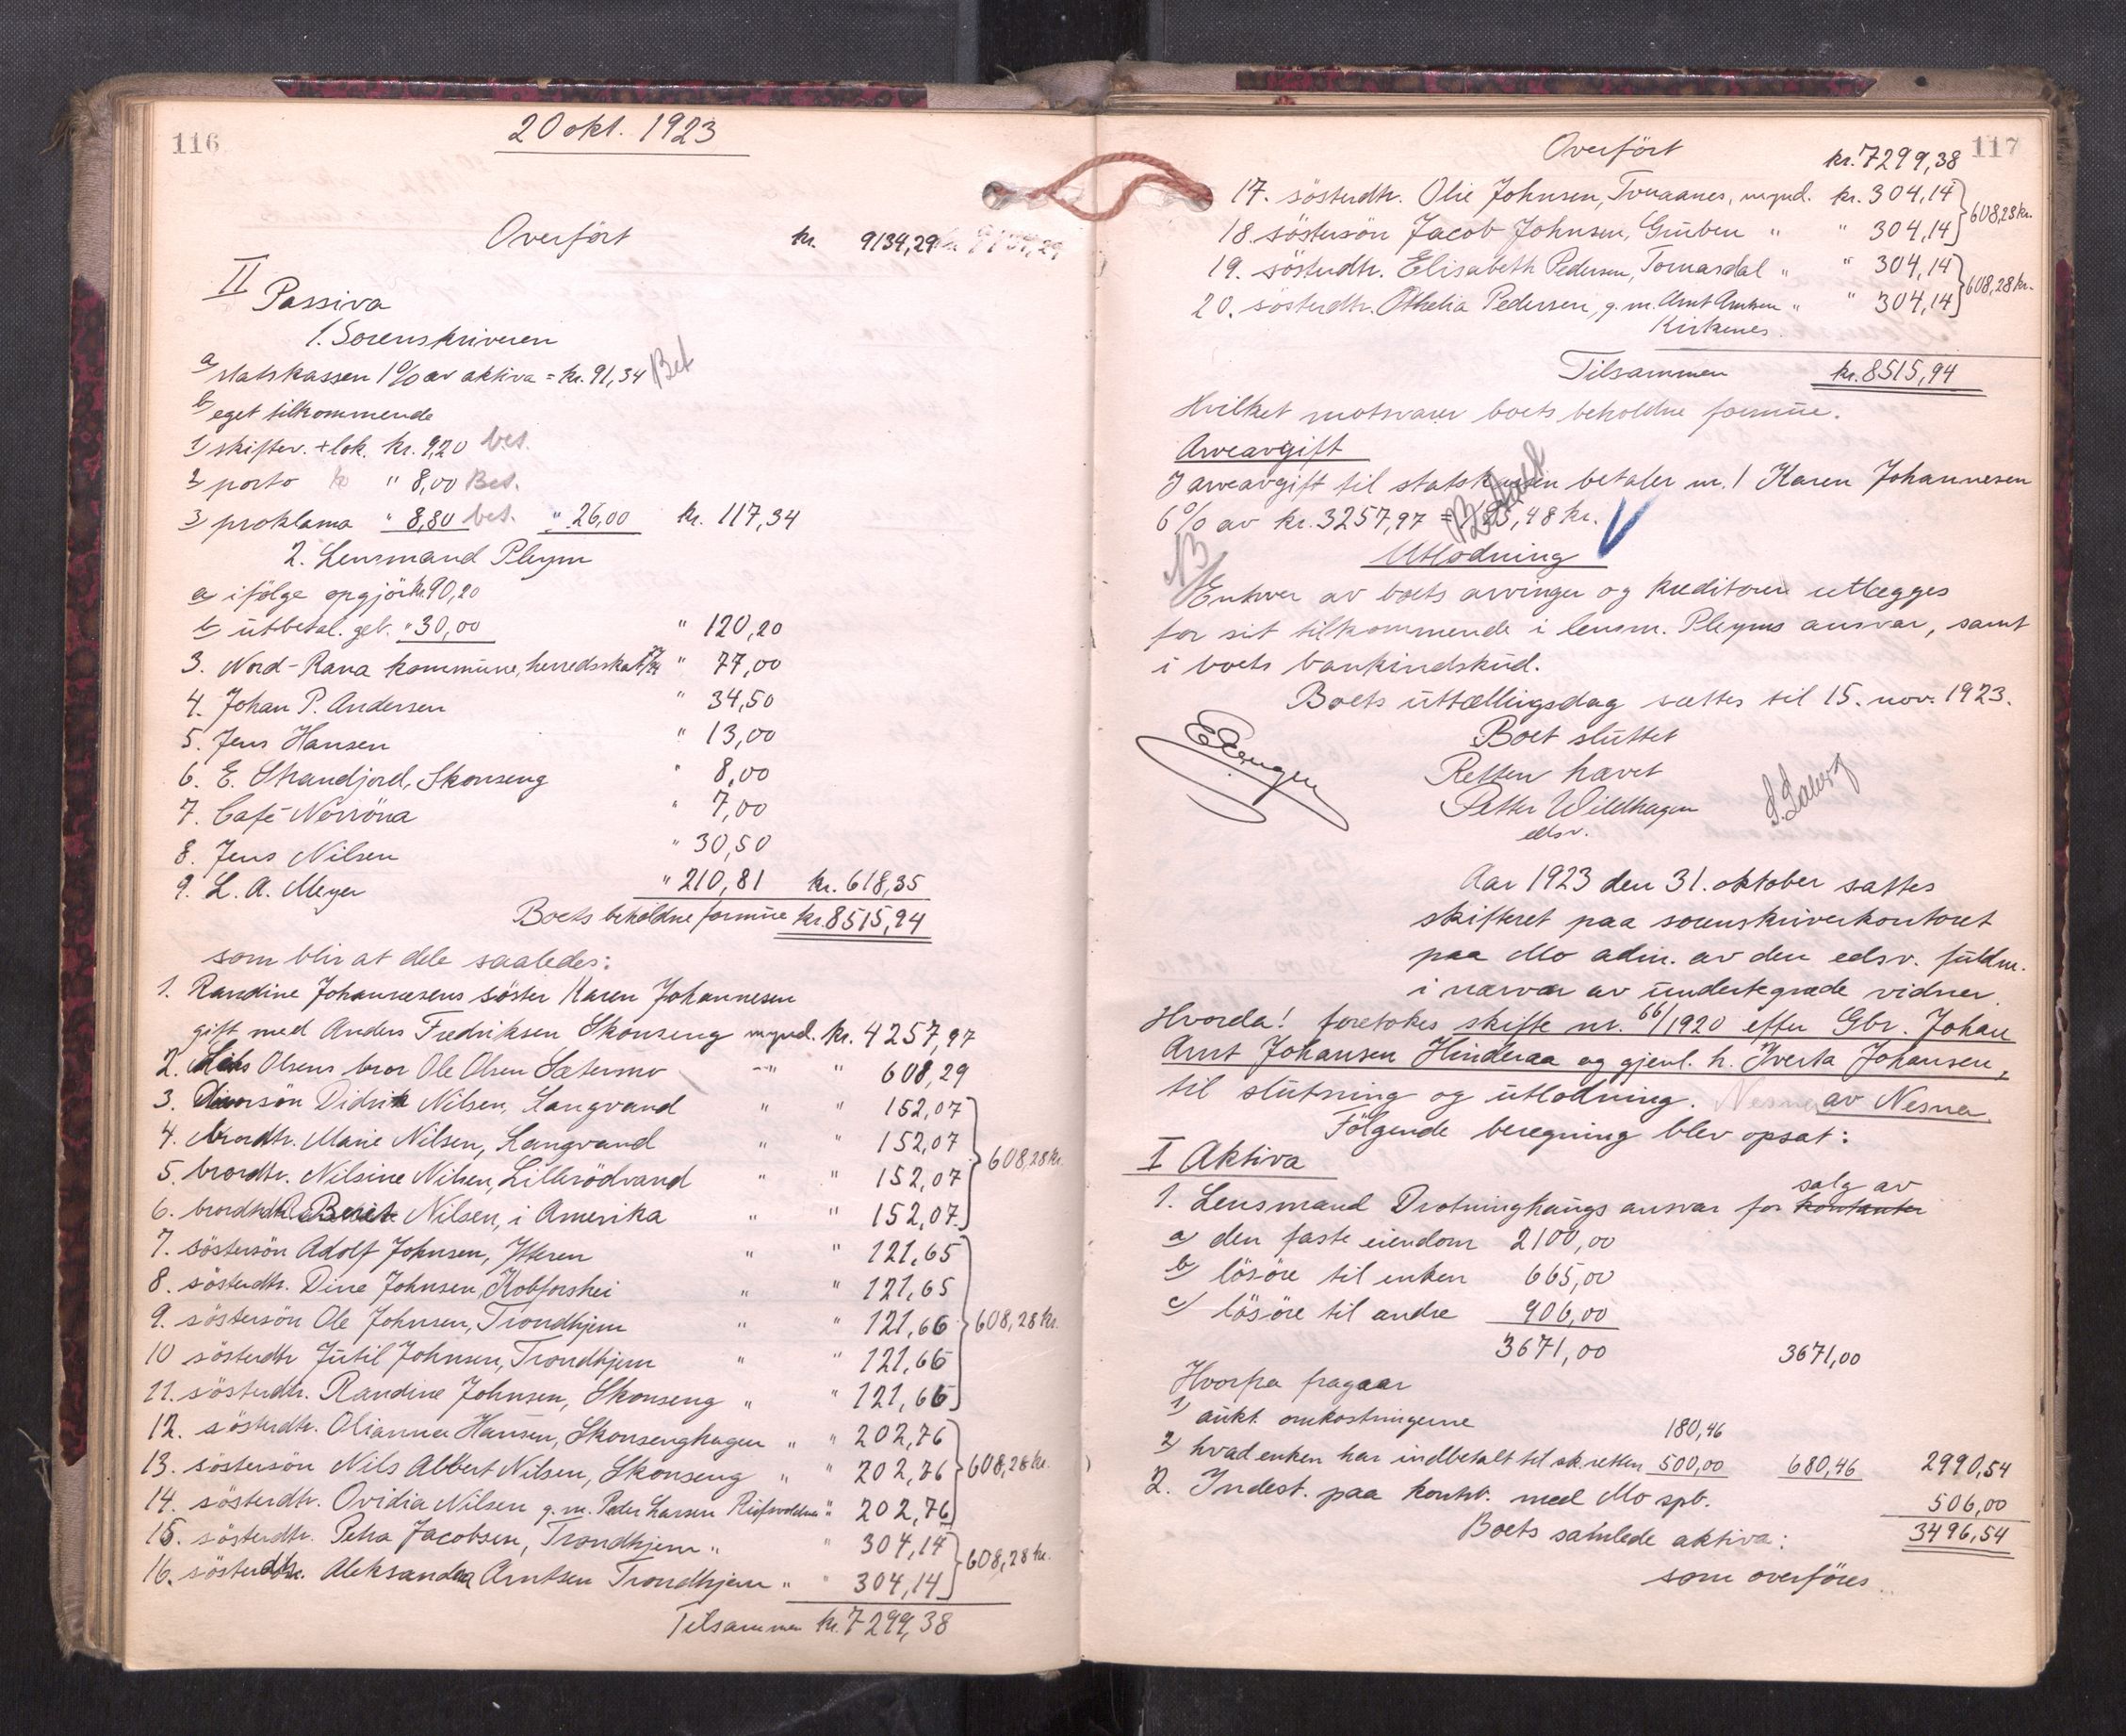 116
20 okt. 1923
Overført kr. 9134,29
II Passiva
1. Sorenskriveren
a) statskassen 1% av aktiva = kr. 91,34 Bet
b) eget tilkommende
1) skifter. + lok. kr. 9,20 bet.
2) porto " 8,00 Bet.
3) proklama " 8,80 bet. " 26,00 kr. 117,34
2. Lensmand Pleym
a) ifölge opgjör kr. 90,20
b) utbetal. geb. " 30,00 " 120,20
3. Nord-Rana kommune, herredsskat " 77,00
4. Johan P. Andersen " 34,50
5. Jens Hansen " 13,00
6. E. Strandjord, Skonseng " 8,00
7. Café Norröna " 7,00
8. Jens Nilsen " 30,50
9. L. A. Meyer " 210,81 kr. 618,35
Boets beholdne formue kr. 8515,94
som blir at dele saaledes:
1. Randine Johannesens söster Karen Johannesen
gift med Anders Fredriksen Skonseng mynd. kr. 4257,97
2. Olsens bror Ole Olsen Sætermo " " 608,29
3. Didrik Nilsen, Langvand " " 152,07
4. brordtr. Marie Nilsen, Langvand " " 152,07
5. brordtr. Nilsine Nilsen, Lillerödvand " " 152,07 608,28 kr.
6. brordtr. Berit Nilsen, i Amerika " " 152,07
7. söstersön Adolf Johnsen, Ytteren " " 121,65
8. sösterdtr. Dine Johnsen, Kobforshei " " 121,65
9. söstersön Ole Johnsen, Trondhjem " " 121,66 608,28 kr.
10 sösterdtr Jutil Johnsen, Trondhjem " " 121,66
11. sösterdtr. Randine Johnsen, Skonseng " " 121,66
12. sösterdtr. Olianna Hansen, Skonsenghagen " " 202,76
13. söstersön Nils Albert Nilsen, Skonseng " " 202,76 608,28 kr.
14. sösterdtr. Ovidia Nilsen g. m. Peder Larsen " 202,76
15. sösterdtr. Petra Jacobsen, Trondhjem " " 304,14
16. sösterdtr. Aleksandra Arntsen Trondhjem " " 304,14 608,28 kr.
Tilsammen kr. 7299,38
117
Overfört kr. 7299,38
17. sösterdtr. Olie Johnsen, Tveraanes, mynd. kr. 304,14
18. söstersön Jacob Johnsen, Gruben " " 304,14 608,28 kr.
19. sösterdtr. Elisabeth Pedersen, Tomasdal " " 304,14
20. sösterdtr. Othelia Pedersen, g. m. Arnt Arntsen " " 304,14 608,28 kr.
Kirkenes.
Tilsammen kr. 8515,94
Hvilket motsvarer boets beholdne formue.
Arveavgift
I arveavgift til statskassen betaler nr. 1 Karen Johannesen
6% av kr. 3257,97 = 195,48 kr.
Betalt
Utlodning
NB
Enhver av boets arvinger og kreditorer utlægges
for sit tilkommende i lensm. Pleyms ansvar, samt
i boets bankindskud.
Boets uttællingsdag sættes til 15. nov. 1923.
Boet sluttet
Retten hævet
Petter Wildhagen
edsv.
Aar 1923 den 31. oktober sattes
skifteret paa sorenskriverkontoret
paa Mo adm. av den edsv. fuldm.
i nærvær av undertegnede vidner.
Hvorda! foretokes skifte nr. 66/1920 efter Gbr. Johan
Arnt Johansen Hinderaa og gjenl. h. Iverta Johansen,
til slutning og utlodning. av Nesna
Fölgende beregning blev opsat:
I Aktiva
salg av
1. Lensmand Drotninghaugs ansvar for kontanter
a) den faste eiendom 2100,00
b) lösöre til enken 665,00
c) lösöre til andre 906,00
3671,00 3671,00
Hvorfra fragaar
1) aukt. omkostningerne 180,46
2) hvad enken har indbetalt til sk. retten 500,00 680,46 2990,54
2. Indest. paa kontrb. med Mo spb. 506,00
Boets samlede aktiva: 3496,54
som overföres